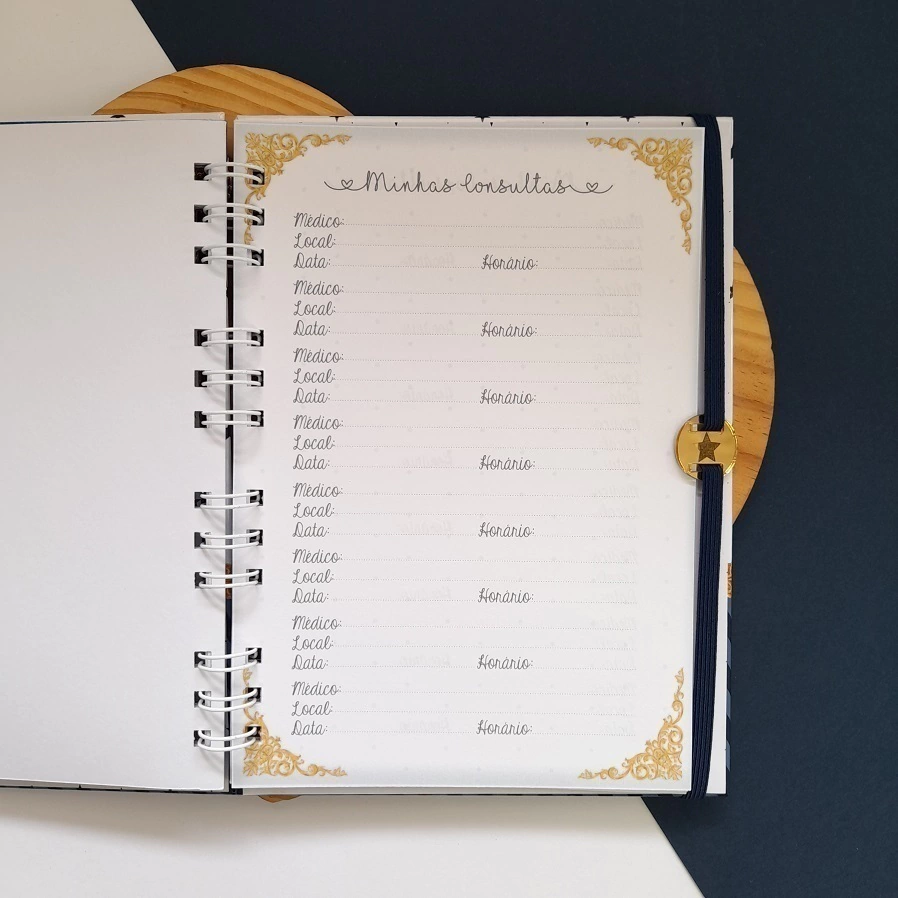 Minhas Consultas
Médico:
Local:
Data: Horário:
Médico:
Local:
Data: Horário:
Médico:
Local:
Data: Horário:
Médico:
Local:
Data: Horário:
Médico:
Local:
Data: Horário:
Médico:
Local:
Data: Horário:
Médico:
Local:
Data: Horário:
Médico:
Local:
Data: Horário: